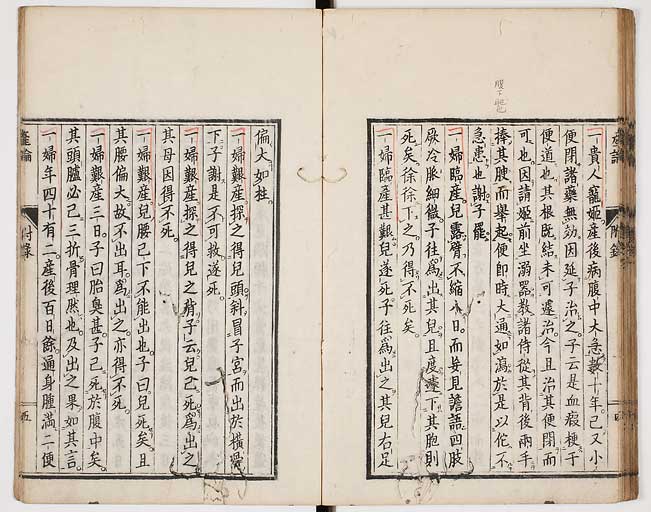 腹下肥
一貴人寵姬産後病腹中大急數十年已又小
便閉諸藥無効因延子治之子云是血瘕梗于
便道也其根既結未可遽治今且治其便閉而
可也因請姬前坐溺器教諸侍從其背後兩手
捧其腰而擧起便即時大通如瀉於是以佗不
急患也謝子罷
一婦臨産兒露臂不縮 日而妄見譫語四肢
厥冷脈細微子往爲出其兒且度 下其胞則
死矣徐徐下之乃得不死矣
一婦臨産甚艱兒遂死子往爲出之其兒右足
産論 附錄 四
偏大如柱
一婦艱産探之得兒頭斜冒子宮而出於橫骨
下子謝是不可救遂死
一婦艱産探之得兒之背子云兒已死爲出之
其母因得不死
一婦艱産兒腰已下不能出也子曰兒死矣且
其腰偏大故不出耳爲出之亦得不死
一婦艱産三日子曰胎臭甚子已死於腹中矣
其頭臚必已三折骨理然也及出之果如其言
一婦年四十有二産後百日餘遍身腫滿二便
産論 附錄 五